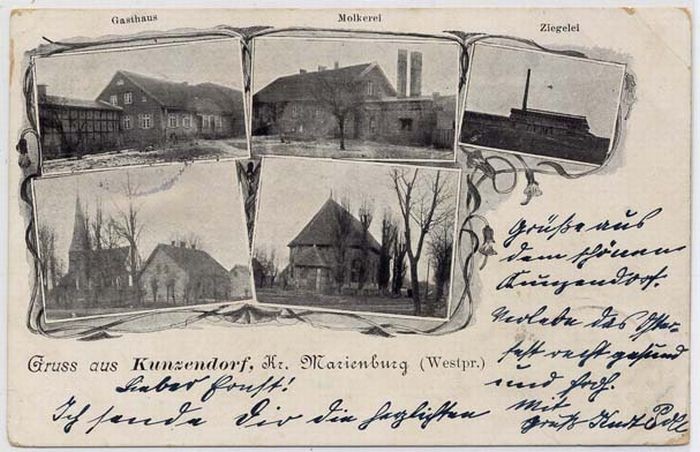 Gasthaus
Molkerei
Ziegelei
Gruss aus Kunzendorf, Kr. Marienburg (Westpr.)
Lieber Ernst!
Ich sende Dir die herzlichsten
Grüße aus
dem schönen
Kunzendorf.
Verlebe das Oster-
fest recht gesund
und froh.
Mit
Gruß